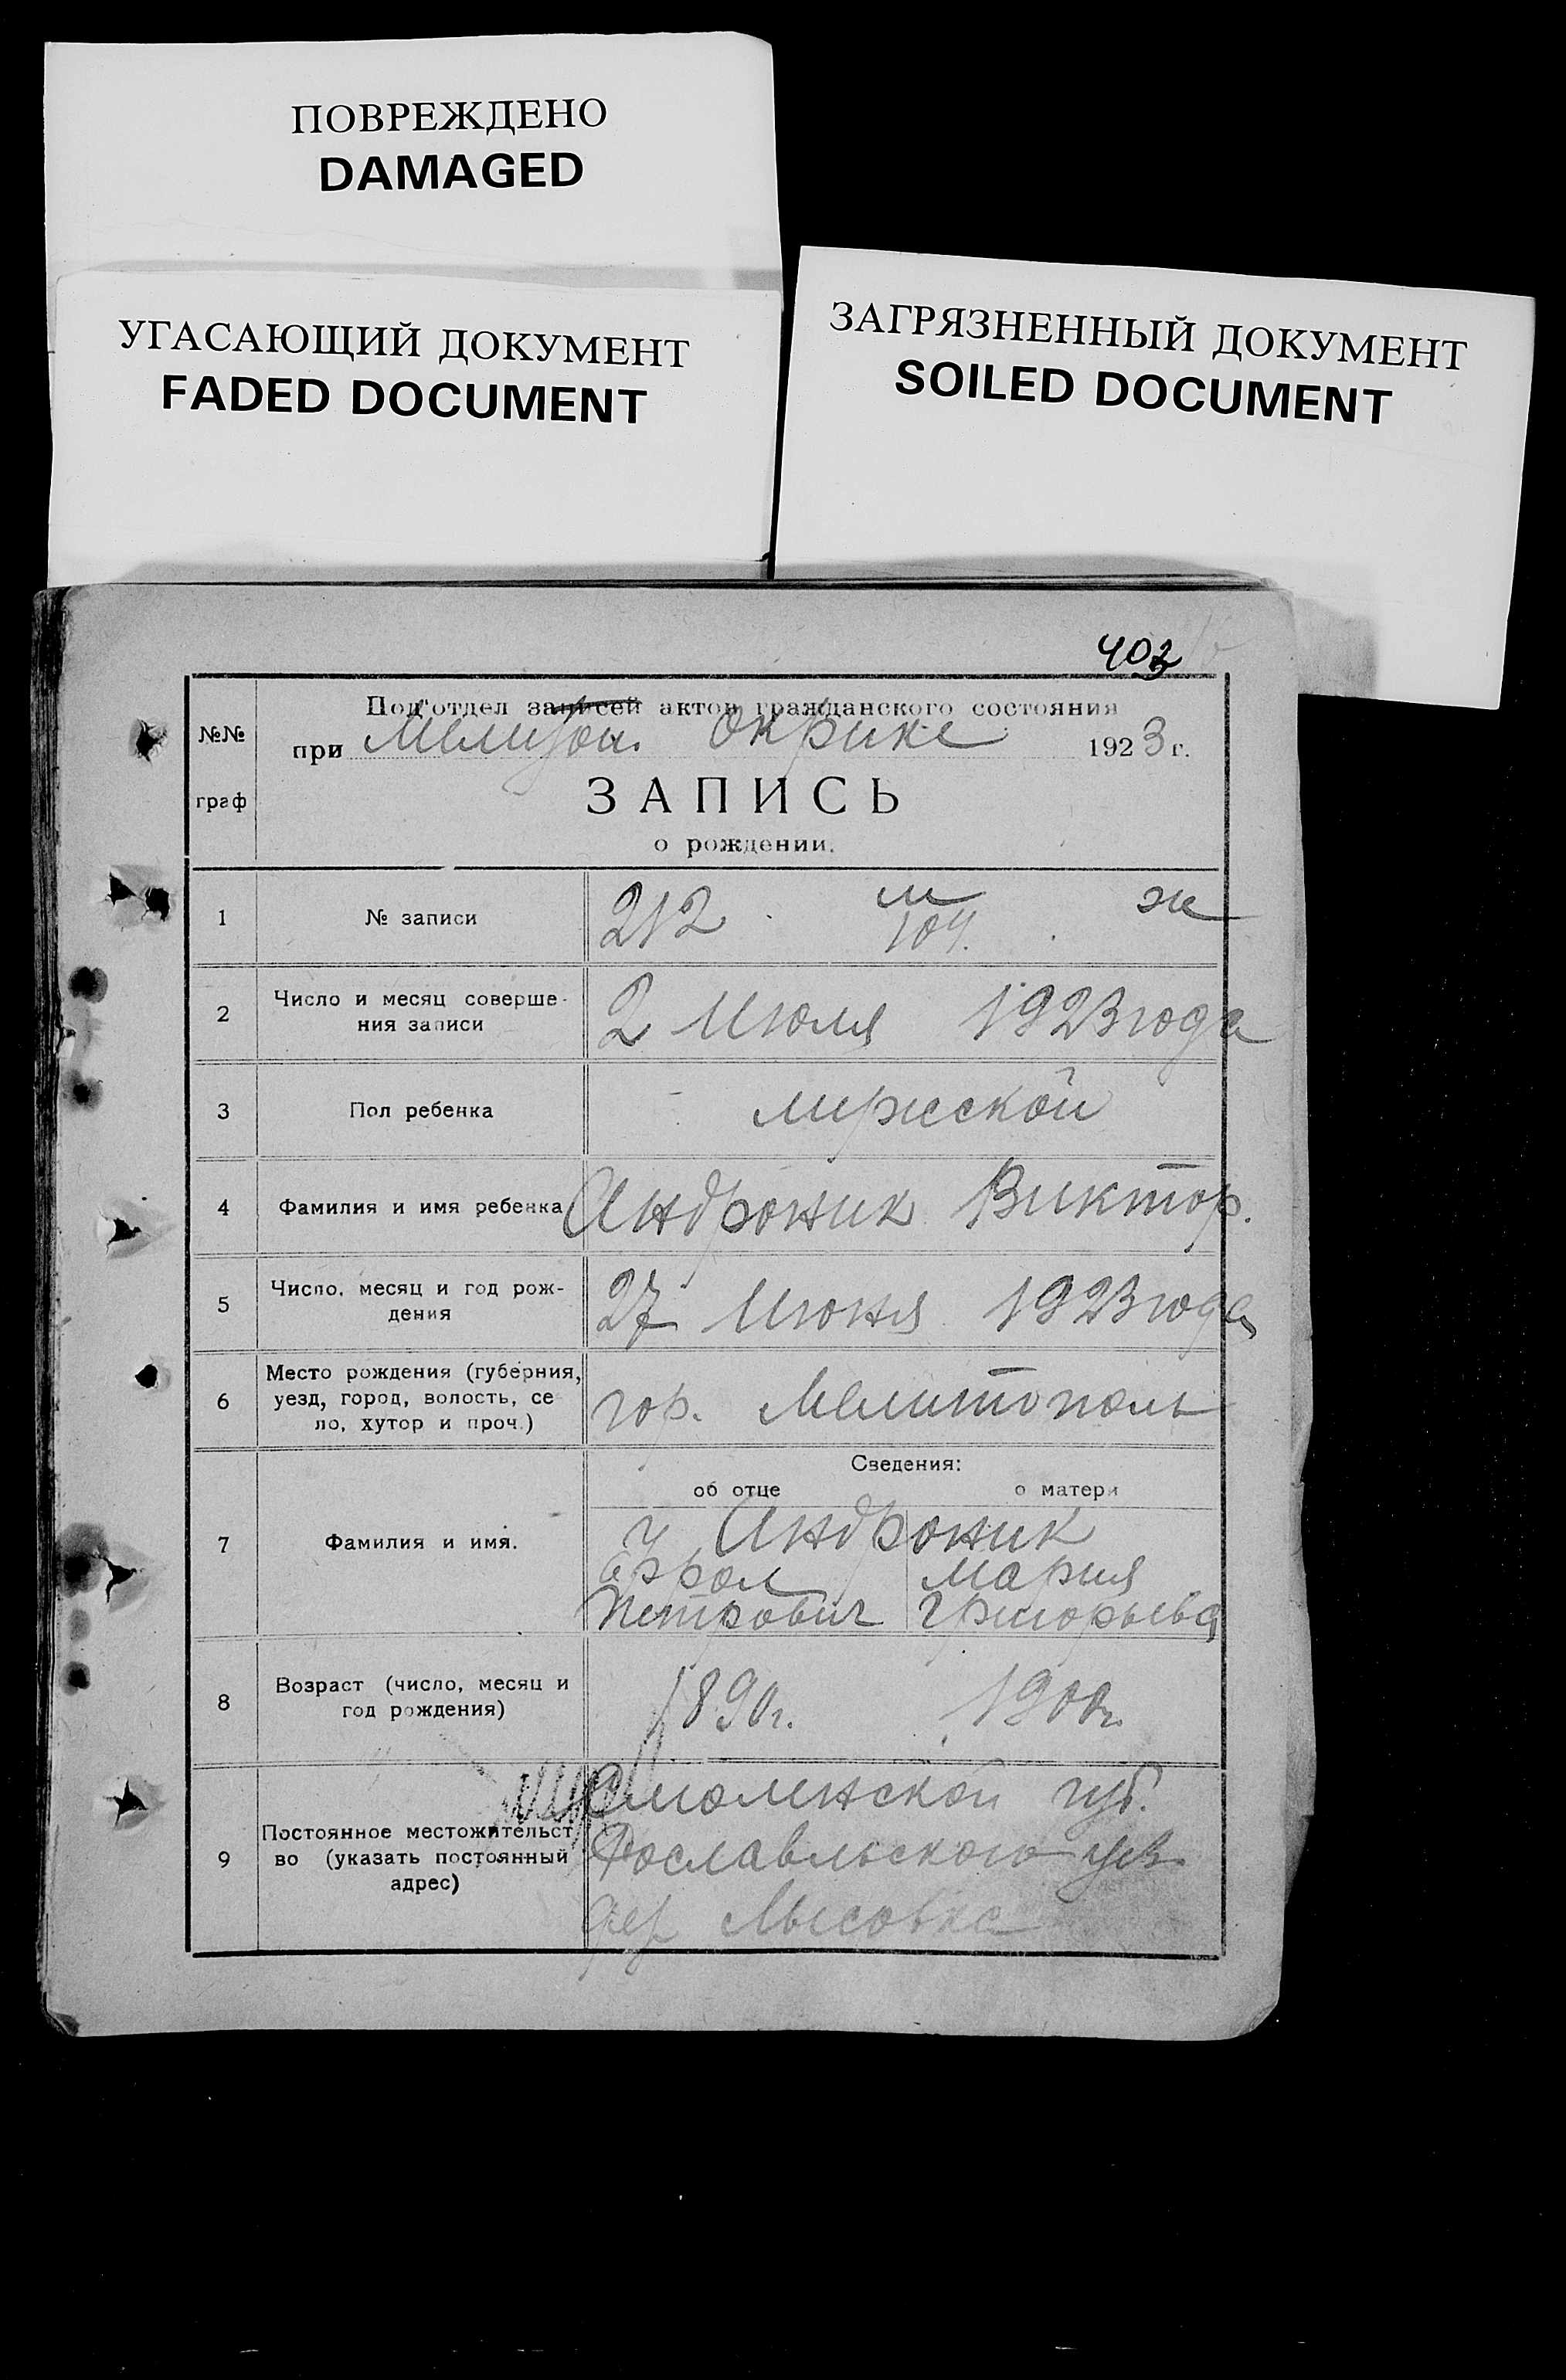 ПОВРЕЖДЕНО
DAMAGED
УГАСАЮЩИЙ ДОКУМЕНТ
FADED DOCUMENT
ЗАГРЯЗНЕННЫЙ ДОКУМЕНТ
SOILED DOCUMENT
403
№№ граф
Под'отдел записей актов гражданского состояния
при Окрике 1923 г.
ЗАПИСЬ
о рождении.
1 № записи 212 м 104. ж
2 Число и месяц соверше-
ния записи 2 Июля 1923 года
3 Пол ребенка мужской
4 Фамилия и имя ребенка Андроник Виктор.
5 Число, месяц и год рож-
дения 27 Июня 1923 года
6 Место рождения (губерния,
уезд, город, волость, се
ло, хутор и проч.) гор. Мелитополь
Сведения:
об отце о матери
7 Фамилия и имя. Андроник
Мария
Петрович Григорьева
8 Возраст (число, месяц и
год рождения) 1890г. 1900г.
9 Постоянное местожительст
во (указать постоянный
адрес)
Смоленской губ.
Рославльского уез.
дер